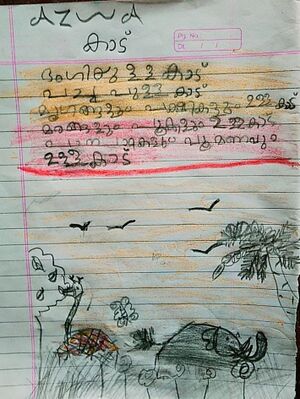 AZWA
കാട്
Pg.No:
Dt. / /
ഭംഗിയുള്ള കാട്
പച്ച പുള്ള കാട്
മൃഗങ്ങളും പക്ഷികളും ഉള്ള കാട്
മരങ്ങളും പൂക്കളും ഉള്ള കാട്
പൂമണവും
ഉള്ള കാട്